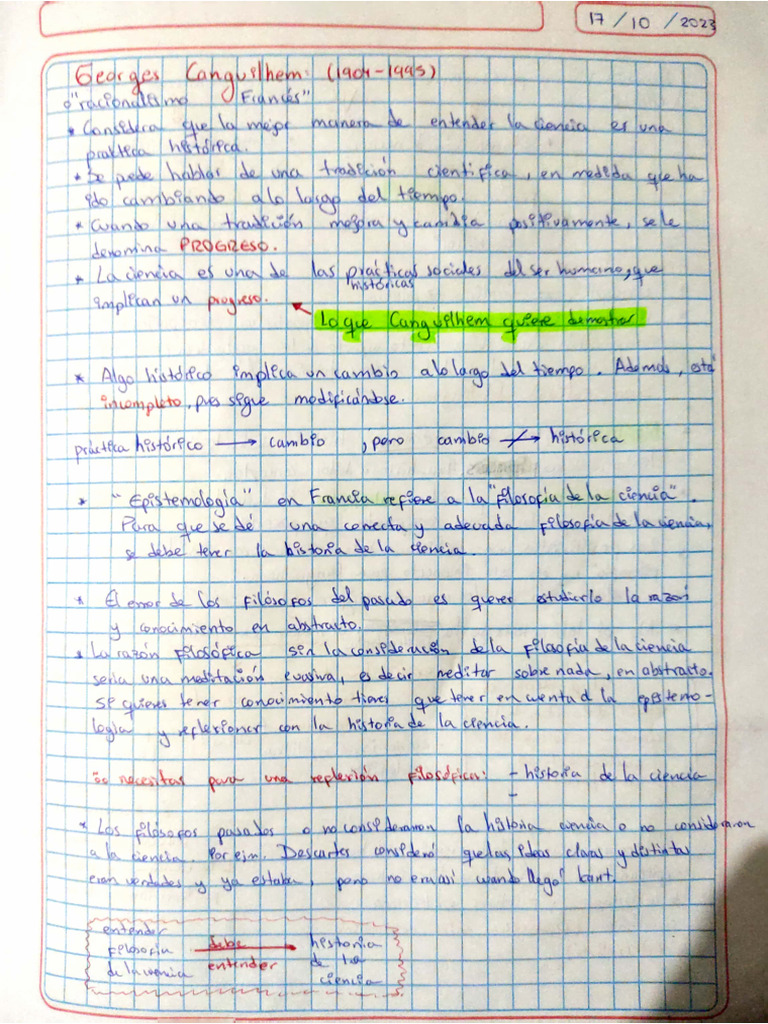 17 / 10 / 2023
Georges Canguilhem: (1904-1995)
o "racionalismo Francés"
* Considera que la mejor manera de entender la ciencia es una
praktica histórica.
* Se puede hablar de una tradición cientifica, en medida que ha
ido cambiando a lo largo del tiempo.
* Cuando una tradición mejora y cambia positivamente, se le
denomina PROGRESO.
* La ciencia es una de las prácticas sociales del ser humano, que
históricas
implican un progreso.
Lo que Canguilhem quiere demostrar
* Algo histórico implica un cambio a lo largo del tiempo. Además, está
incompleto, pues sigue modificándose.
práctica histórico → cambio , pero cambio ↛ histórica
* "Epistemología" en Francia refiere a la "filosofía de la ciencia".
Para que se dé una correcta y adecuada filosofía de la ciencia,
se debe tener la historia de la ciencia.
* El error de los filósofos del pasado es querer estudiarlo la razón
y conocimiento en abstracto.
* La razón filosófica sin la consideración de la filosofía de la ciencia
sería una meditación evasiva, es decir meditar sobre nada, en abstracto.
Si quieres tener conocimiento tienes que tener en cuenta a la epistemo-
logía y reflexionar con la historia de la ciencia.
necesitas para una reflexión filosófica: - historia de la ciencia
-
* Los filósofos pasados o no consideraron la historia ciencia o no consideraron
a la ciencia. Por ejm. Descartes consideró que las ideas claras y distintas
eran verdades y ya estaba, pero no era así cuando llegó Kant.
entender
filosofía debe historia
de la ciencia entender de la
ciencia